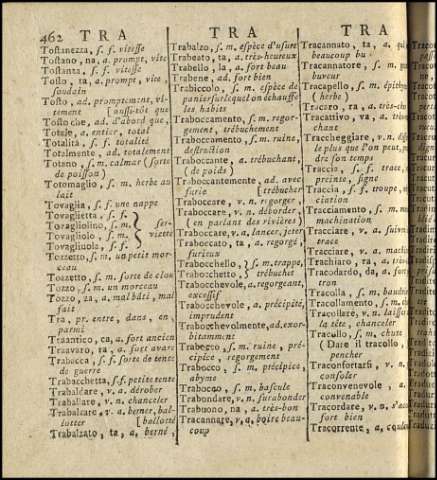 462 TRA TRA TRA
Tostanezza, s. f. vitesse
Tostano, na, a. prompt, vite
Tostanza, s. f. vitesse
Tosto, ta, a. prompt, vite,
soudain
Tosto, ad. promptement, vi-
tement [aussi-tôt que
Tosto che, ad. d'abord que,
Totale, a. entier, total
Totalità, s. f. totalité
Totalmente, ad. totalement
Totano, s. m. calmar (sorte
de poisson)
Totomaglio, s. m. herbe au
lait
Tovaglia, s. f. une nappe
Tovaglietta, s. f.
Tovagliolino, s. m. ser-
Tovagliolo, s. m. viette
Tovagliuola, s. f.
Tozzetto, s. m. un petit mor-
ceau
Tozzetto, s. m. sorte de clou
Tozzo, s. m. un morceau
Tozzo, za, a. mal bâti, mal
fait
Tra, pr. entre, dans, en,
parmi
Traantico, ca, a. fort ancien
Traavaro, ra, a. fort avare
Trabacca, s. f. sorte de tente
de guerre
Trabacchetta, s. f. petite tente
Trabaldare, v. a. dérober
Traballare, v. n. chanceler
Trabalzare, v. a. berner, bal-
lotter [ballotté
Trabalzato, ta, a. berné,
Trabalzo, s. m. espèce d'usure
Trabeato, ta, a. très-heureux
Trabello, la, a. fort beau
Trabene, ad. fort bien
Trabiccolo, s. m. espèce de
panier sur lequel on échauffe
les habits
Traboccamento, s. m. regor-
gement, trébuchement
Traboccamento, s. m. ruine,
destruction
Traboccante, a. trébuchant,
(de poids)
Traboccantemente, ad. avec
furie [trébucher
Traboccare, v. n. regorger
Traboccare, v. n. déborder,
(en parlant des rivières)
Traboccare, v. a. lancer, jeter
Traboccato, ta, a. regorgé,
furieux
Trabocchello, s. m. trappe,
Trabocchetto, trébuchet
Trabocchevole, a. regorgeant,
excessif
Trabocchevole, a. précipité,
imprudent
Trabocchevolmente, ad. exor-
bitamment
Trabocco, s. m. ruine, pré-
cipice, regorgement
Trabocco, s. m. précipice,
abyme
Trabocco, s. m. bascule
Trabondare, v. n. surabonder
Trabuono, na, a. très-bon
Tracannare, v. a. boire beau-
coup
Tracannato, ta, a.
beaucoup bu
Tracannatore, s. m.
buveur
Tracapello, s. m. épithym
(herbe)
Tracaro, ra, a. très-cher
Tracattivo, va, a.
chant
Traccheggiare, v. n.
le plus que l'on peut,
dre son temps
Traccia, s. f. trace,
preinte, signe
Traccia, s. f. troupe,
ciation
Tracciamento, s. m.
machination
Tracciare, v. a. suivre
trace
Tracciare, v. a. machiner
Trachiaro, ra, a.
Tracodardo, da, a.
tron
Tracolla, s. m. baudrier
Tracollamento, s. m.
Tracollare, v. n. laisser
la tête, chanceler
Tracollo, s. m. chute
(Dare il tracollo,
pencher
Traconfortarsi, v. n.
consoler
Traconvenevole, a.
convenable
Tracordare, v. n.
fort bien
Tracorrente, a.